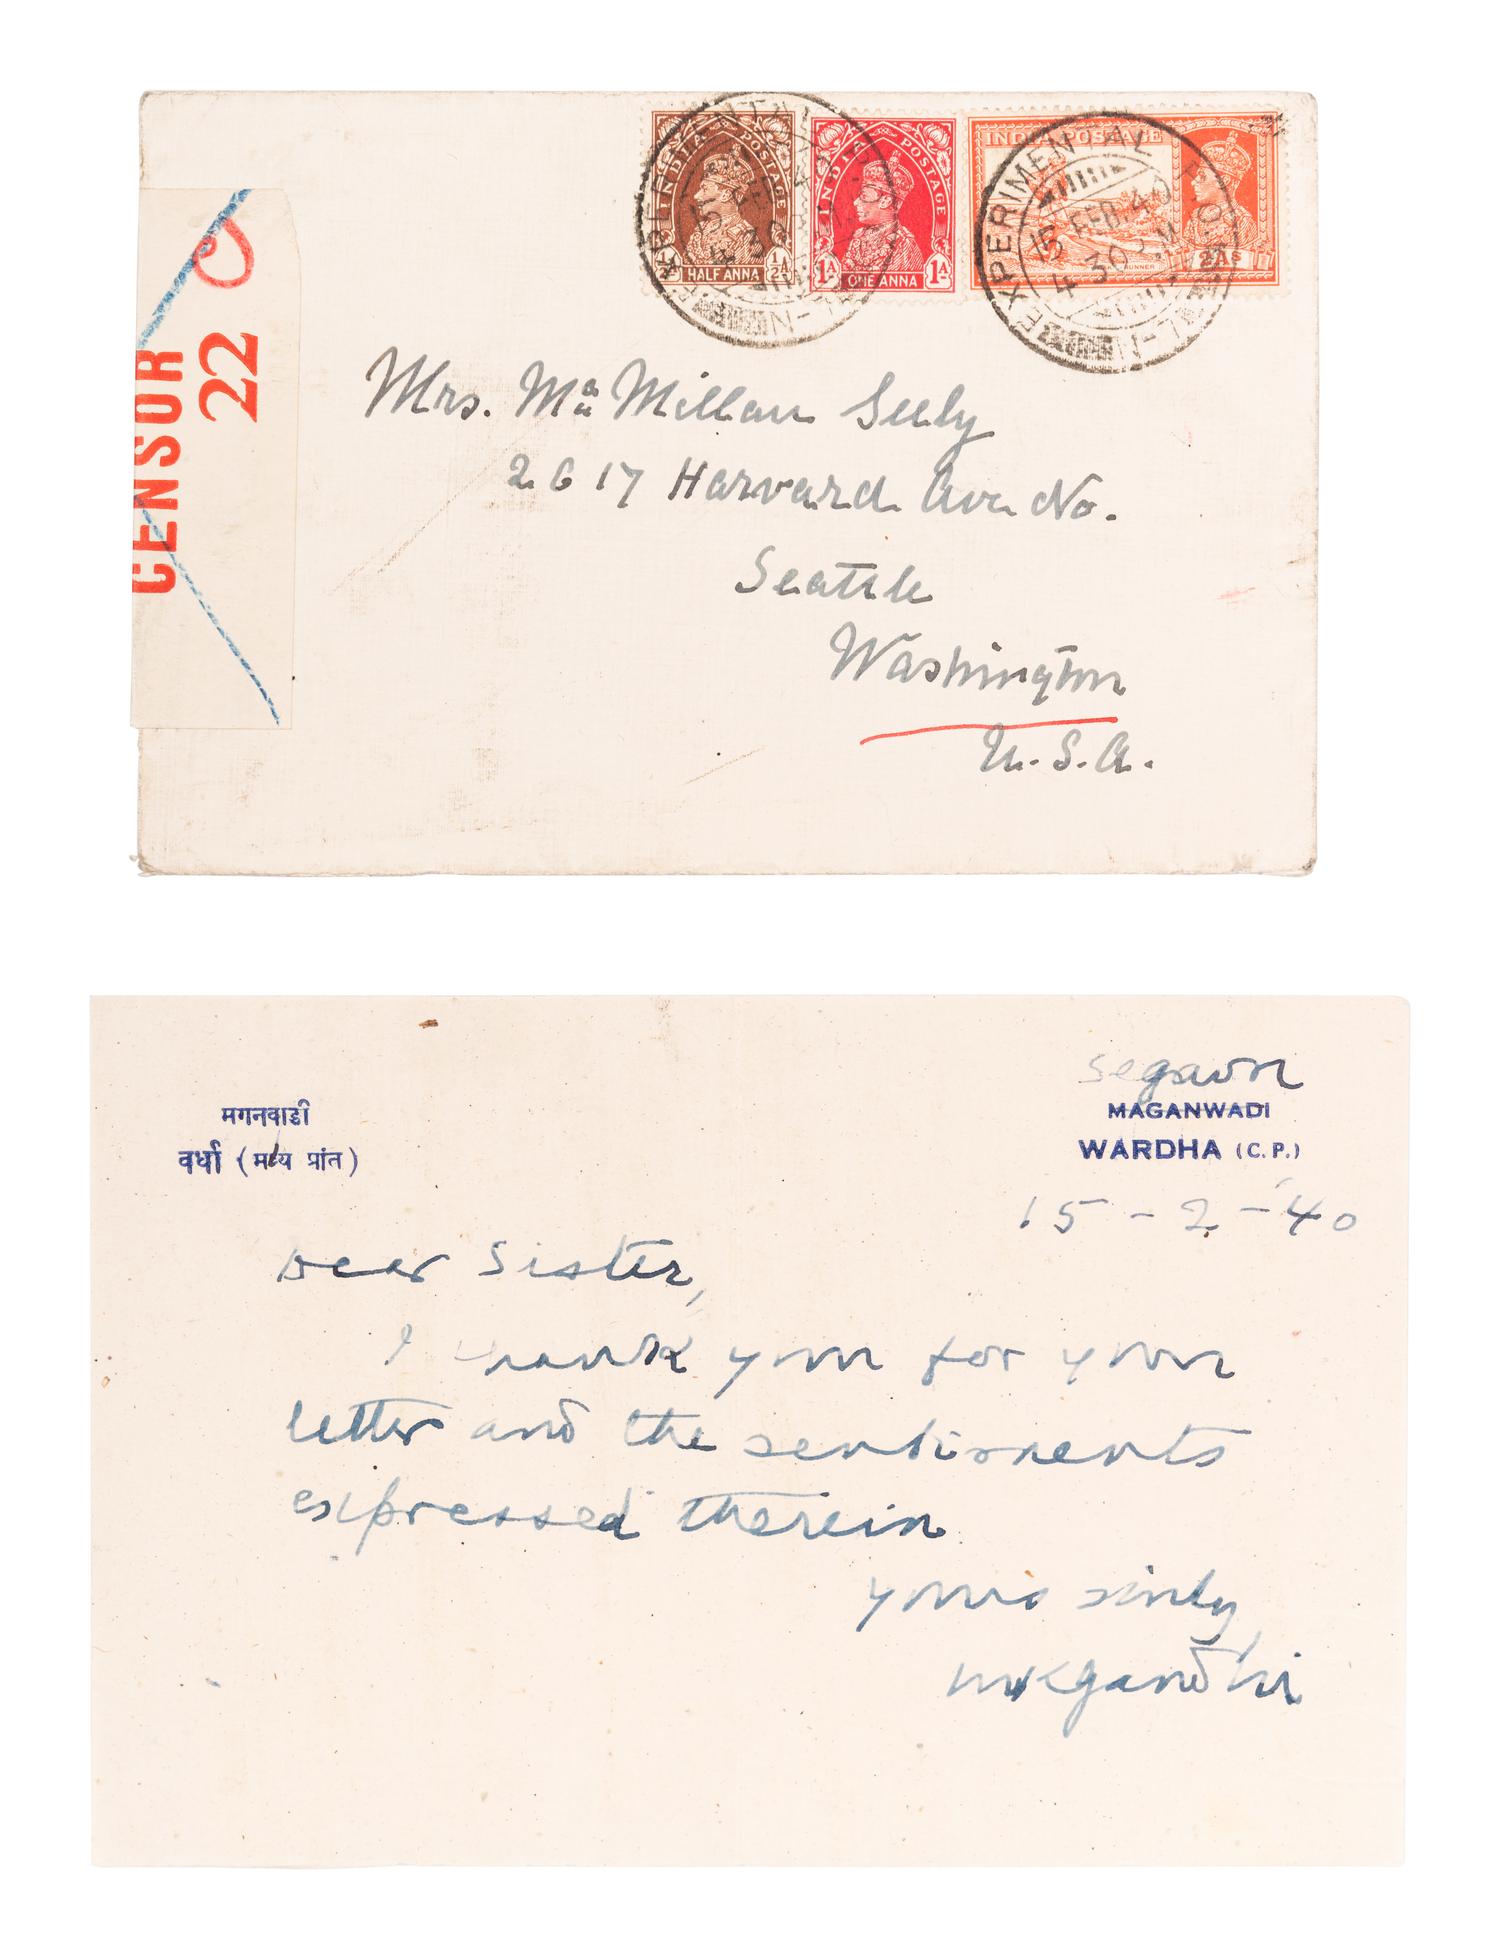 INDIA POSTAGE
HALF ANNA
½A
INDIA POSTAGE
1A ONE ANNA 1A
INDIA POSTAGE
RUNNER
2As
EXPERIMENTAL P.O.
15 FEB. 40
4 30 P.M
CENSOR
22
Mrs. Mac Millan Seely
2617 Harvard Ave No.
Seattle
Washington
U.S.A.
मगनवाडी
वर्धा (मध्य प्रांत)
Segaon
MAGANWADI
WARDHA (C. P.)
15-2-40
Dear Sister,
I thank you for your
letter and the sentiments
expressed therein
Yours sinly
MKGandhi